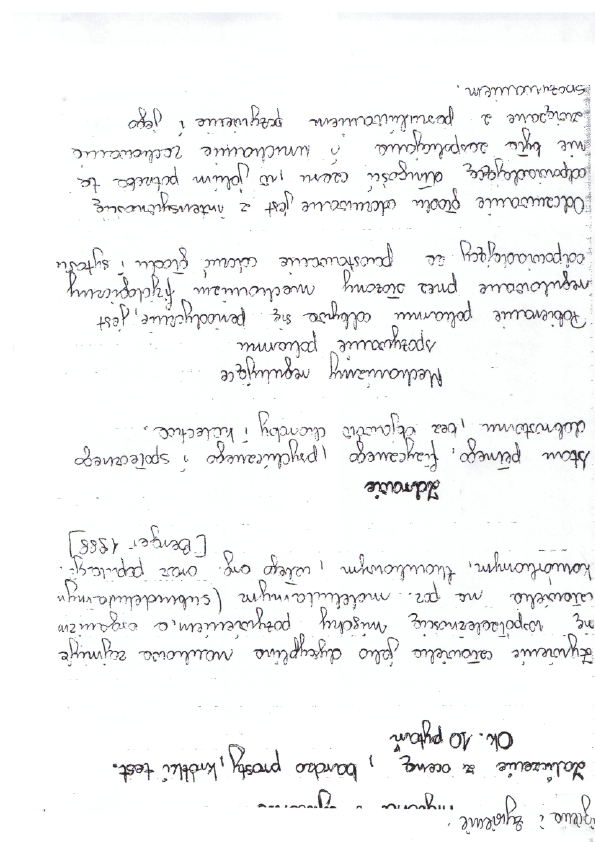 Higiena i żywienie.
Zaliczenie z oceną, bardzo prosty, krótki test.
Ok. 10 pytań
Żywienie człowieka jako dyscyplina naukowa zajmuje
się współzależnością między pożywieniem, a organizm
człowieka na poz. molekularnym (submolekularnym
komórkowym, tkankowym, całego org. oraz populacji.
[Berger 1988]
Zdrowie
Stan pełnego, fizycznego, psychicznego i społecznego
dobrostanu, bez objawów choroby i kalectwa.
Mechanizmy regulujące
spożywanie pokarmu
Pobieranie pokarmu odbywa się periodycznie, jest
regulowane przez złożony mechanizm fizjologiczny
odpowiadający za powstawanie uczuć głodu i sytości
Odczuwanie głodu odczuwane jest z intensywnością
odpowiadającą długości czasu, w jakim potrzeba ta
nie była zaspokajana i uruchamia zachowanie
związane z poszukiwaniem pożywienia i jego
spożywaniem.